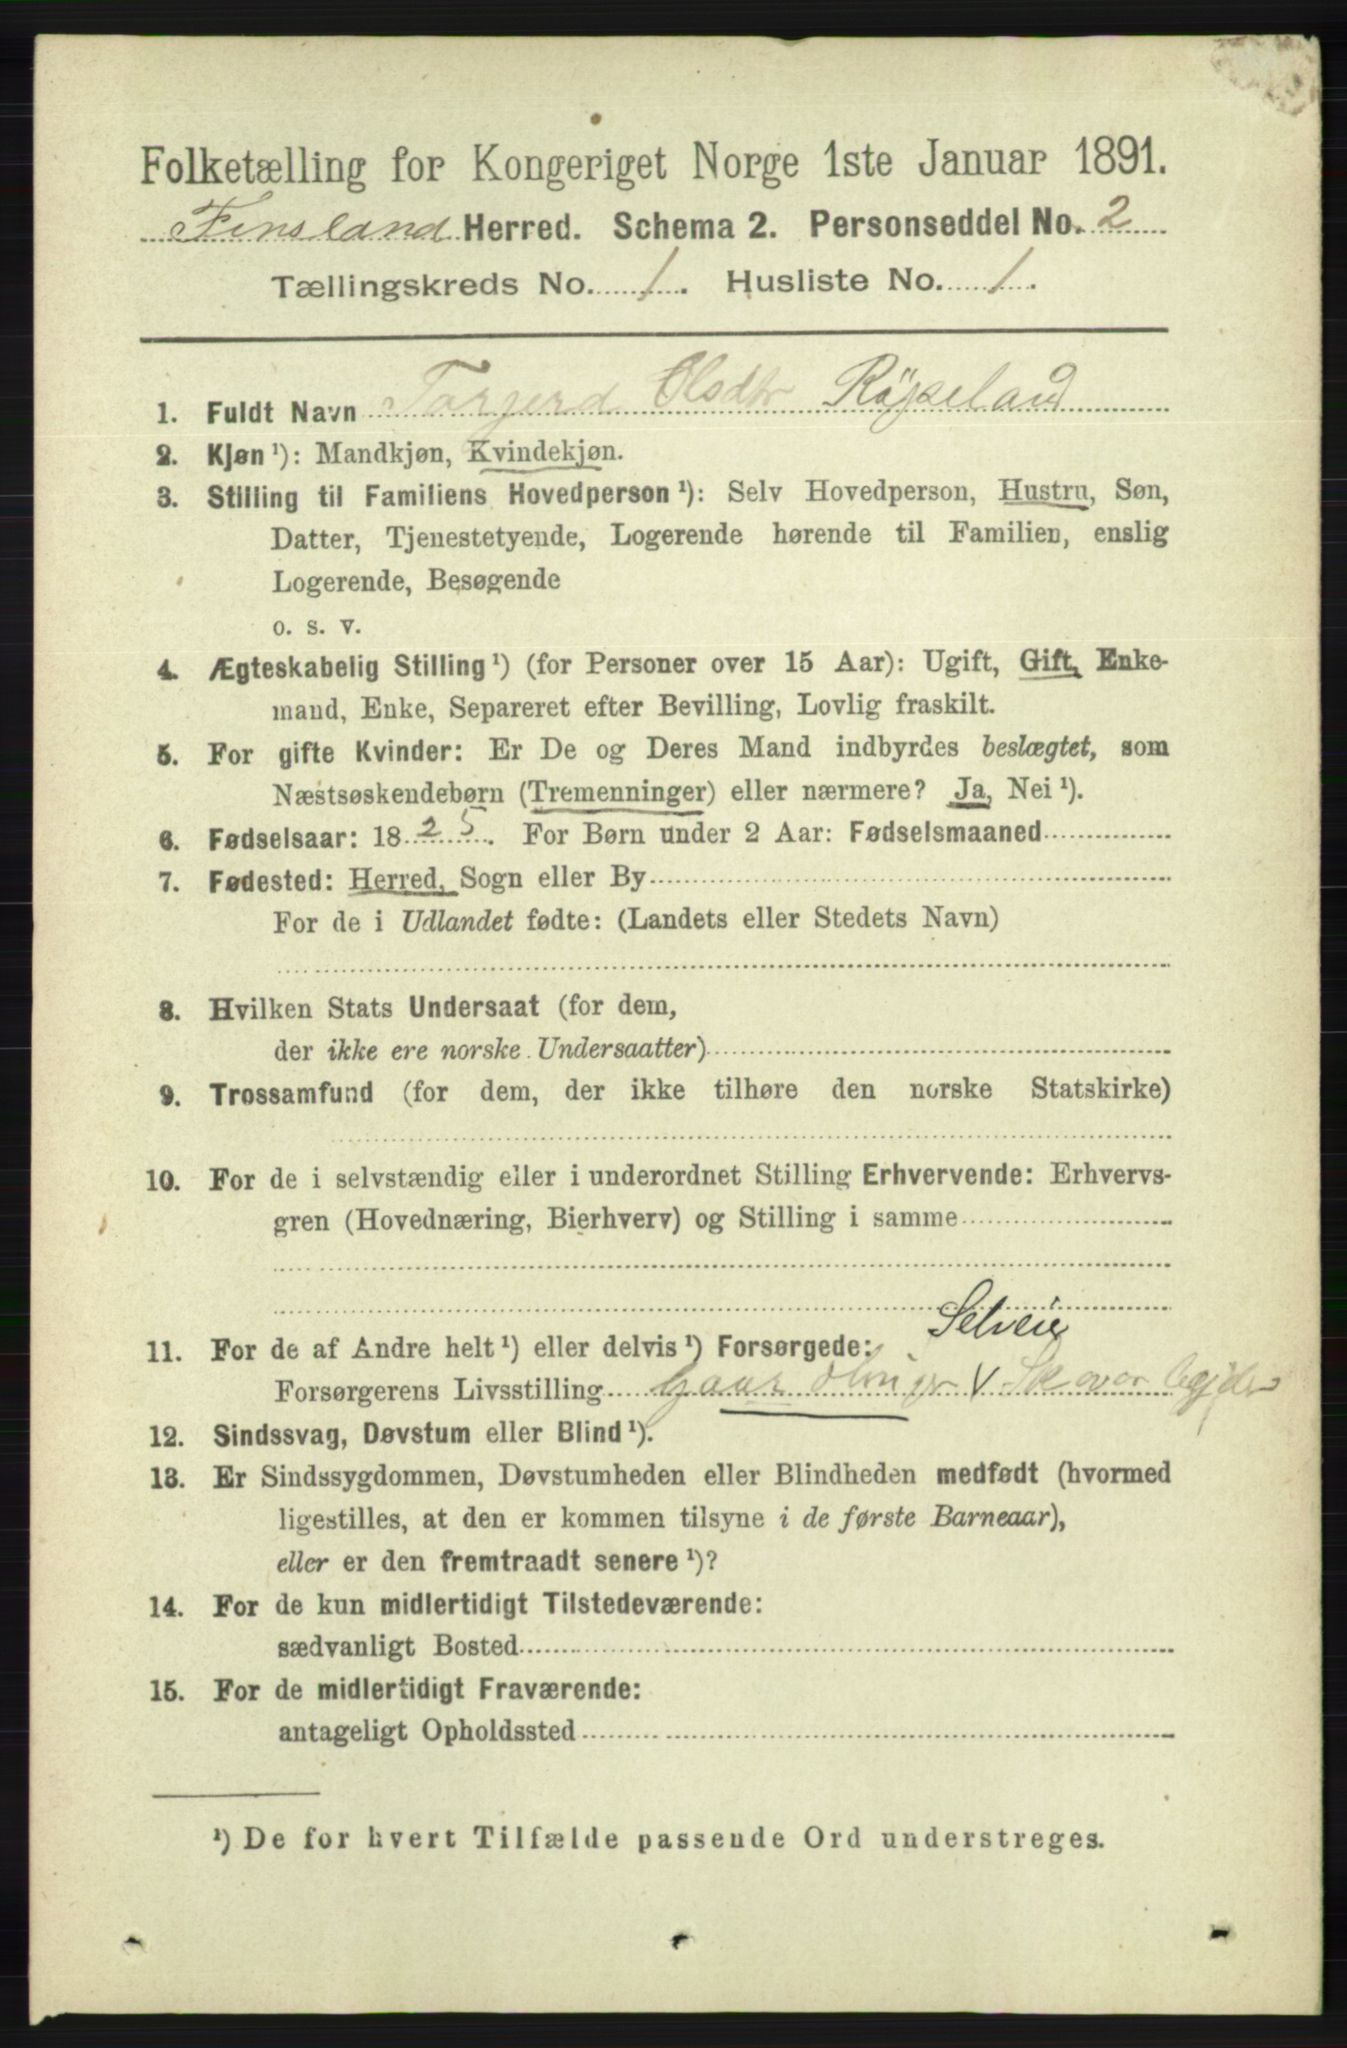 Folketælling for Kongeriget Norge 1ste Januar 1891.
Finsland Herred. Schema 2. Personseddel No. 2
Tællingskreds No. 1. Husliste No. 1.
1. Fuldt Navn Torgerd Olsdtr Röjseland
2. Kjøn ¹): Mandkjøn, Kvindekjøn.
3. Stilling til Familiens Hovedperson ¹): Selv Hovedperson, Hustru, Søn,
Datter, Tjenestetyende, Logerende hørende til Familien, enslig
Logerende, Besøgende
o. s. v.
4. Ægteskabelig Stilling ¹) (for Personer over 15 Aar): Ugift, Gift, Enke-
mand, Enke, Separeret efter Bevilling, Lovlig fraskilt.
5. For gifte Kvinder: Er De og Deres Mand indbyrdes beslægtet, som
Næstsøskendebørn (Tremenninger) eller nærmere? Ja, Nei ¹).
6. Fødselsaar: 1825. For Børn under 2 Aar: Fødselsmaaned
7. Fødested: Herred, Sogn eller By
For de i Udlandet fødte: (Landets eller Stedets Navn)
8. Hvilken Stats Undersaat (for dem,
der ikke ere norske Undersaatter)
9. Trossamfund (for dem, der ikke tilhøre den norske Statskirke)
10. For de i selvstændig eller i underordnet Stilling Erhvervende: Erhvervs-
gren (Hovednæring, Bierhverv) og Stilling i samme
Selveie
11. For de af Andre helt ¹) eller delvis ¹) Forsørgede:
Forsørgerens Livsstilling Gaar V Skovarbejder
12. Sindssvag, Døvstum eller Blind ¹).
13. Er Sindssygdommen, Døvstumheden eller Blindheden medfødt (hvormed
ligestilles, at den er kommen tilsyne i de første Barneaar),
eller er den fremtraadt senere ¹)?
14. For de kun midlertidigt Tilstedeværende:
sædvanligt Bosted
15. For de midlertidigt Fraværende:
antageligt Opholdssted
¹) De for hvert Tilfælde passende Ord understreges.